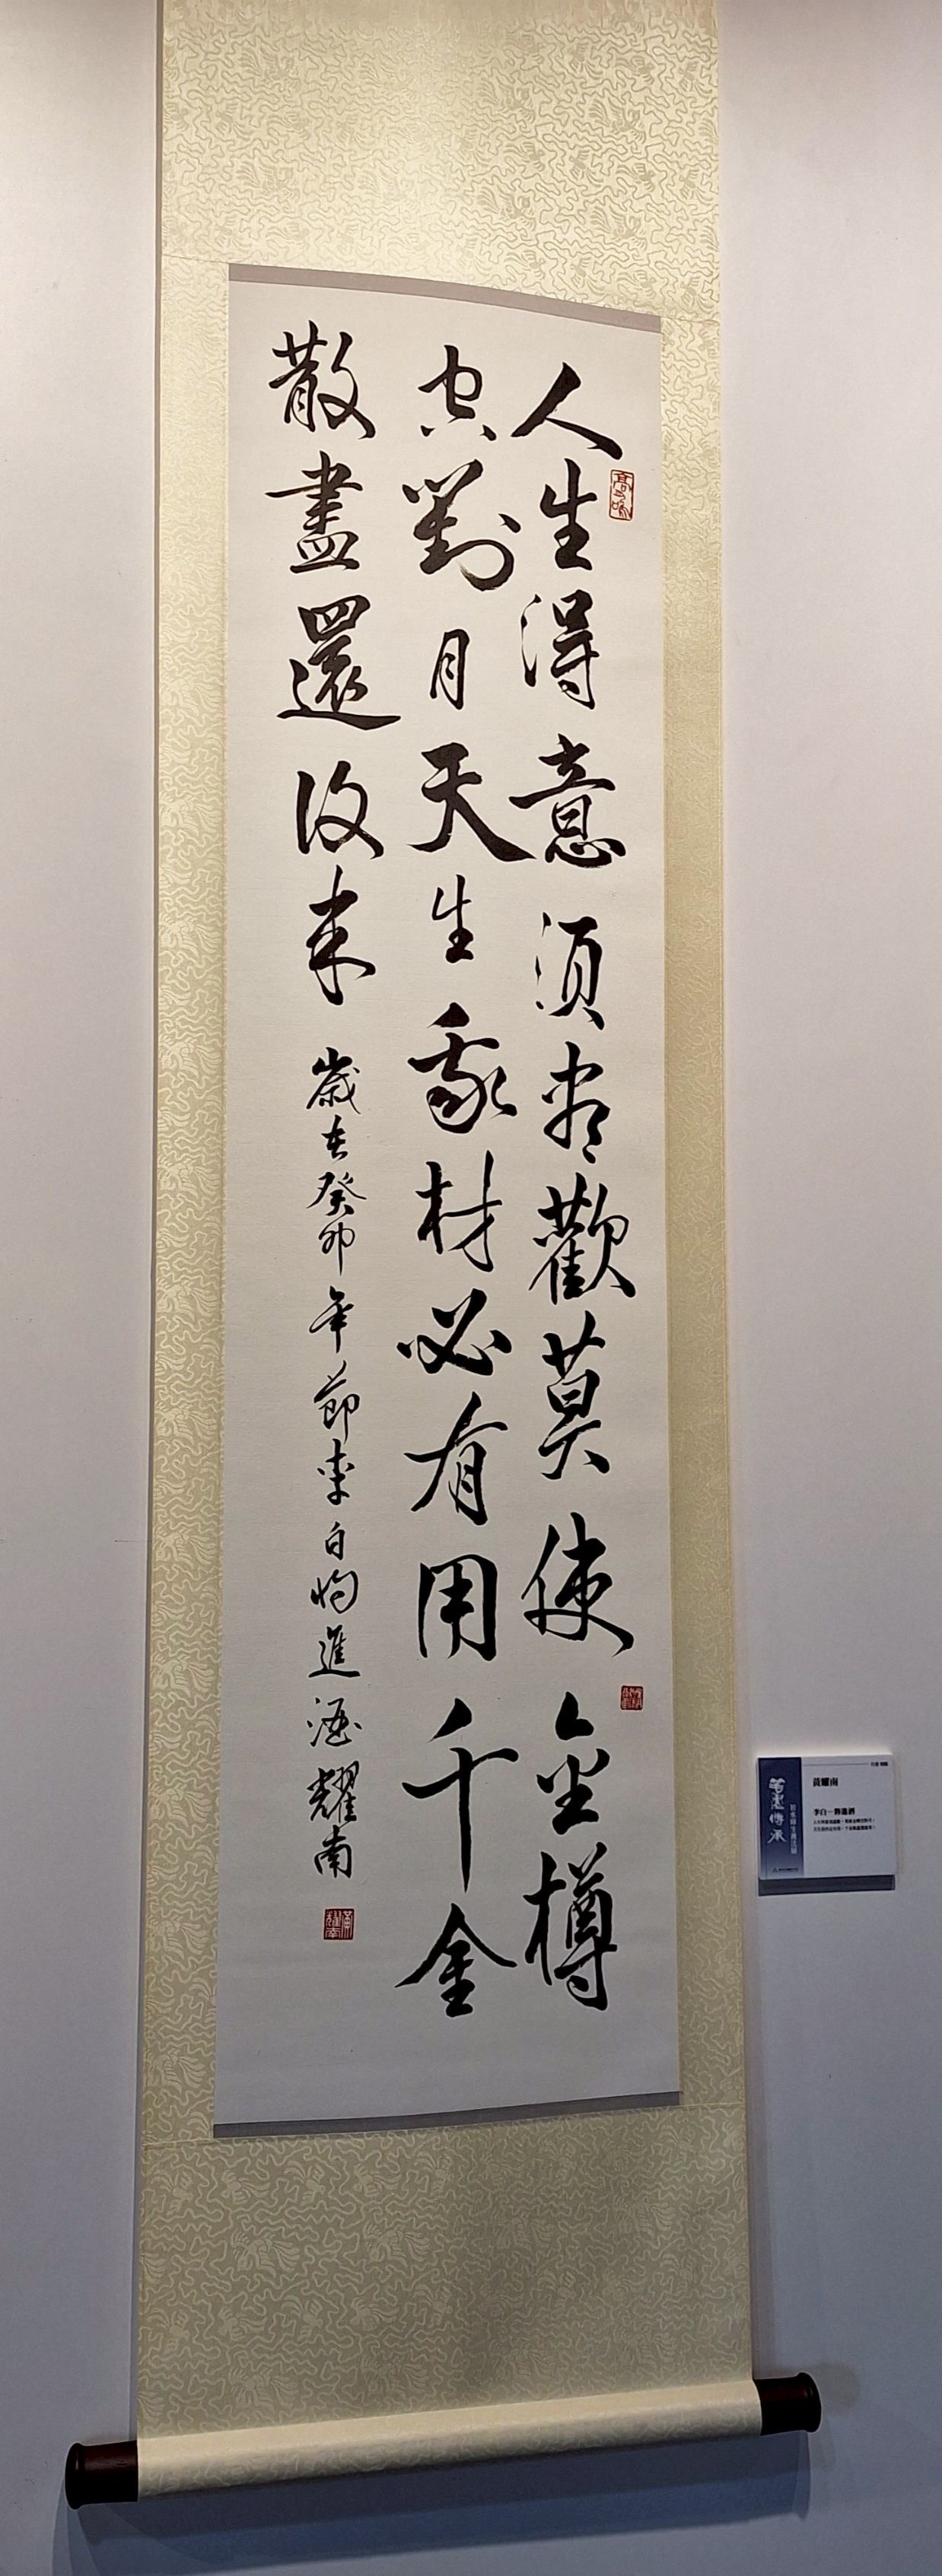 人生得意須盡歡莫使金樽
空對月天生我材必有用千金
散盡還復來
歲在癸卯年節李白將進酒耀南
黃耀南
筆墨傳承
黃耀南
李白－將進酒
人生得意須盡歡，莫使金樽空對月。
天生我材必有用，千金散盡還復來。